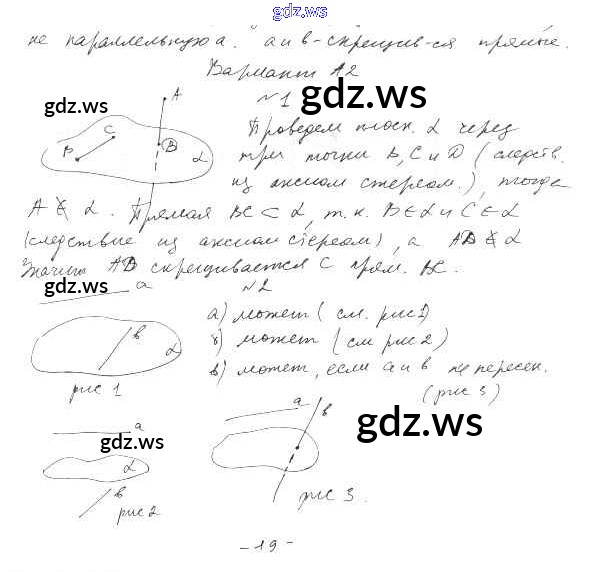 gdz.ws
не параллельную а." а и в - скрещив-ся прямые.
Вариант А2
gdz.ws
gdz.ws
№1
A
B
C
D
α
Проведем плоск. α через
три точки В, С и D (следств.
из аксиом стереом.), тогда
А ∉ α. Прямая ВС ⊂ α, т.к. В ∈ α и С ∈ α
(следствие из аксиом стереом), а АD ⊄ α
Значит АD скрещивается с прям. ВС.
№2
gdz.ws
а
в
α
рис 1
а) может (см. рис1)
б) может (см рис 2)
в) может, если а и в не пересек.
(рис 3)
а
gdz.ws
α
в
рис 2
а
в
gdz.ws
рис 3.
- 19 -